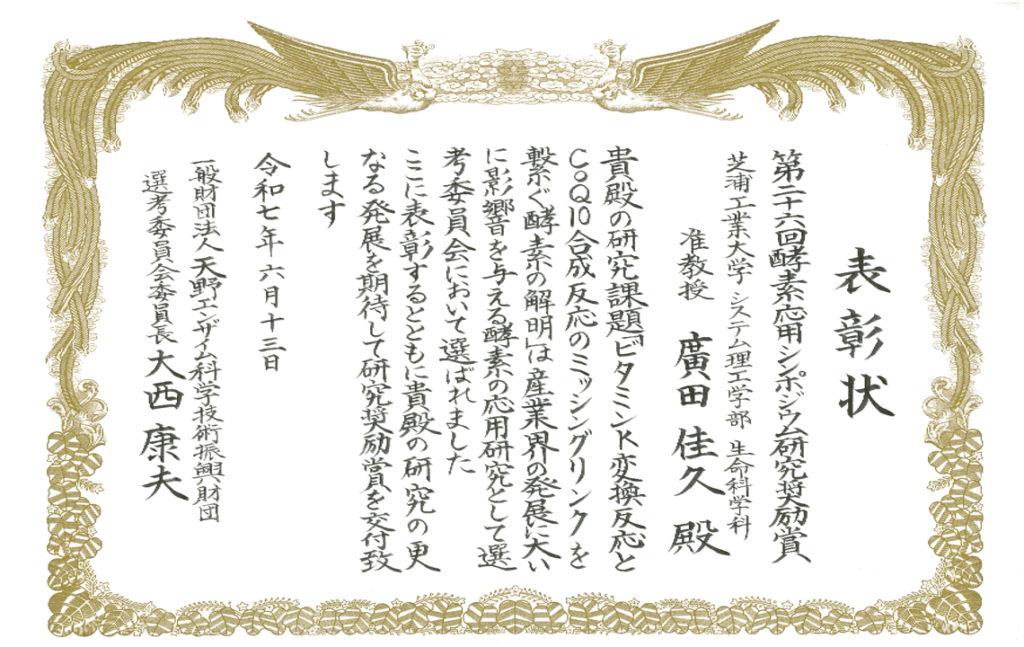 表彰状
第二十六回酵素応用シンポジウム研究奨励賞
芝浦工業大学 システム理工学部 生命科学科
准教授 廣田 佳久 殿
貴殿の研究課題「ビタミンK変換反応と
CoQ10合成反応のミッシングリンクを
繋ぐ酵素の解明」は産業界の発展に大い
に影響を与える酵素の応用研究として選
考委員会において選ばれました
ここに表彰するとともに貴殿の研究の更
なる発展を期待して研究奨励賞を交付致
します
令和七年 六月十三日
一般財団法人 天野エンザイム科学技術振興財団
選考委員会委員長 大西 康夫